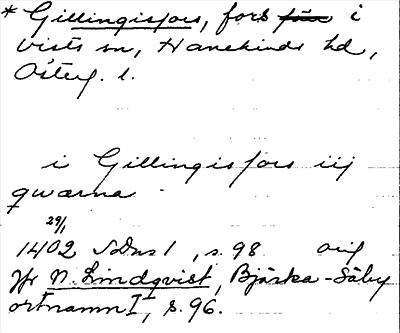 * Gillingisfors, fors i
Vists sn, Hanekinds hd,
Österg. l.
i Gillingisfors iij
qwærna
29/1
1402 SDns 1, s. 98. orig
Jfr N. Lindqvist, Bjärka-Säby
ortnamn I, s. 96.